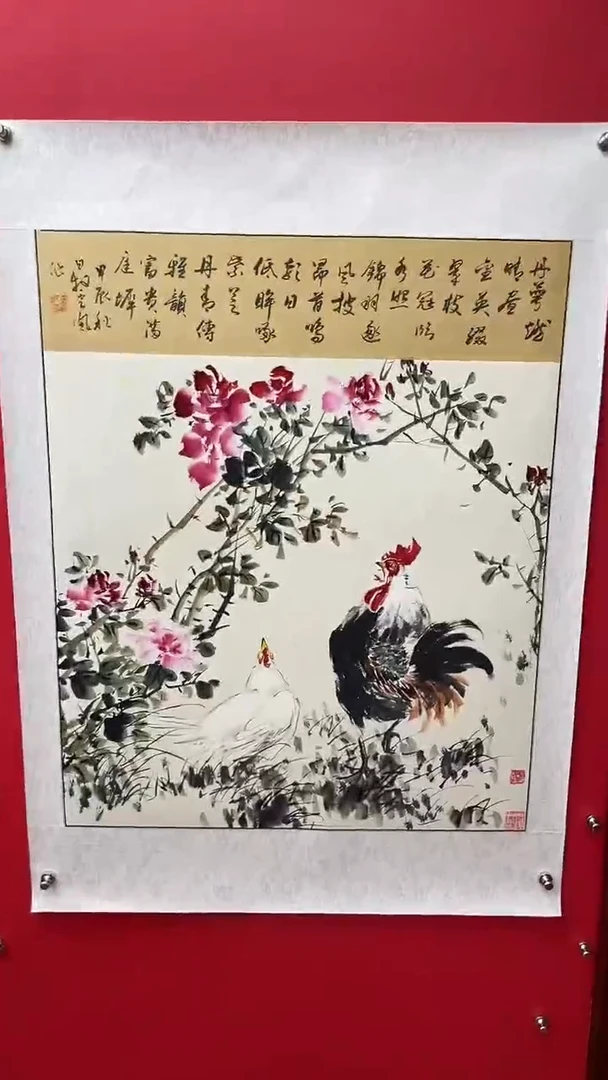 丹萼
晴晝
金英綴
翠枝
花冠臨
秀照
錦羽逐
風披
昂首鳴
朝日
低眸啄
紫芝
丹青傳
雅韻
富貴滿
庭墀
甲辰秋
作